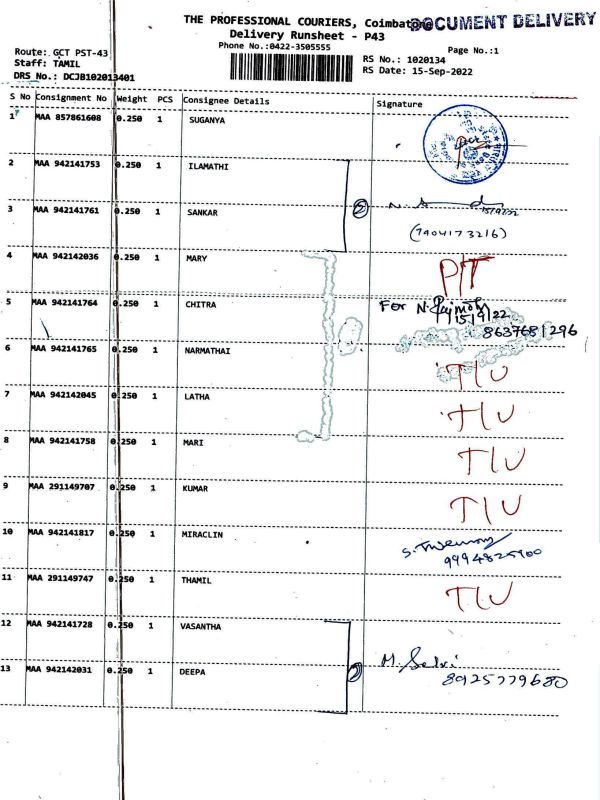 THE PROFESSIONAL COURIERS, Coimbatore
DOCUMENT DELIVERY
Delivery Runsheet - P43
Phone No.:0422-3505555
Page No.:1
Route: GCT PST-43
Staff: TAMIL
DRS No.: DCJB102013401
RS No.: 1020134
RS Date: 15-Sep-2022
S No Consignment No Weight PCS Consignee Details Signature
1 MAA 857861608 0.250 1 SUGANYA
2 MAA 942141753 0.250 1 ILAMATHI
3 MAA 942141761 0.250 1 SANKAR
2
15/9/22
(7904173216)
4 MAA 942142036 0.250 1 MARY P/T
5 MAA 942141764 0.250 1 CHITRA For N.
15/9/22
8637681296
6 MAA 942141765 0.250 1 NARMATHAI T/U
7 MAA 942142045 0.250 1 LATHA T/U
8 MAA 942141758 0.250 1 MARI T/U
9 MAA 291149707 0.250 1 KUMAR T/U
10 MAA 942141817 0.250 1 MIRACLIN
9994825900
11 MAA 291149747 0.250 1 THAMIL T/U
12 MAA 942141728 0.250 1 VASANTHA
13 MAA 942142031 0.250 1 DEEPA
M. Selvi
8925779680